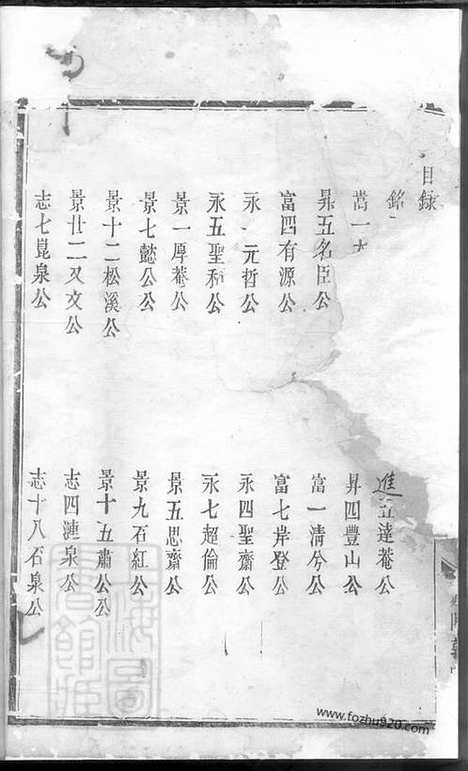 目錄
銘
嵩一
進 達菴公
昇五名臣公
昇四豐山公
富四有源公
富一清兮公
永 一元哲公
富七岸登公
永五聖和公
永四聖齋公
景一厚菴公
永七超倫公
景七懿公公
景五思齋公
景十二松溪公
景九石紅公
景廿二又文公
景十五肅公公
志七崑泉公
志四漣泉公
志十八石泉公
www.fozhu920.com